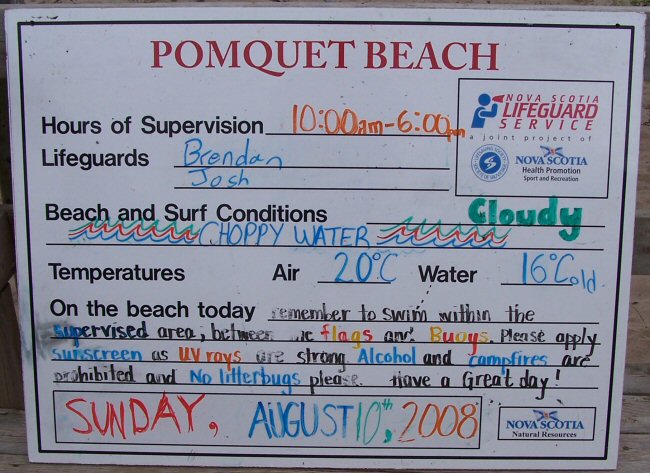 POMQUET BEACH
NOVA SCOTIA
LIFEGUARD
SERVICE
a joint project of
NOVA SCOTIA
Health Promotion
Sport and Recreation
Hours of Supervision 10:00am-6:00pm
Lifeguards Brendan
Josh
Beach and Surf Conditions Cloudy
CHOPPY WATER
Temperatures Air 20°C Water 16°Cold.
On the beach today remember to swim within the
supervised area, between the flags and Buoys. Please apply
sunscreen as UV rays are strong. Alcohol and campfires are
prohibited and No litterbugs please. Have a Great day!
SUNDAY, AUGUST 10th, 2008
NOVA SCOTIA
Natural Resources